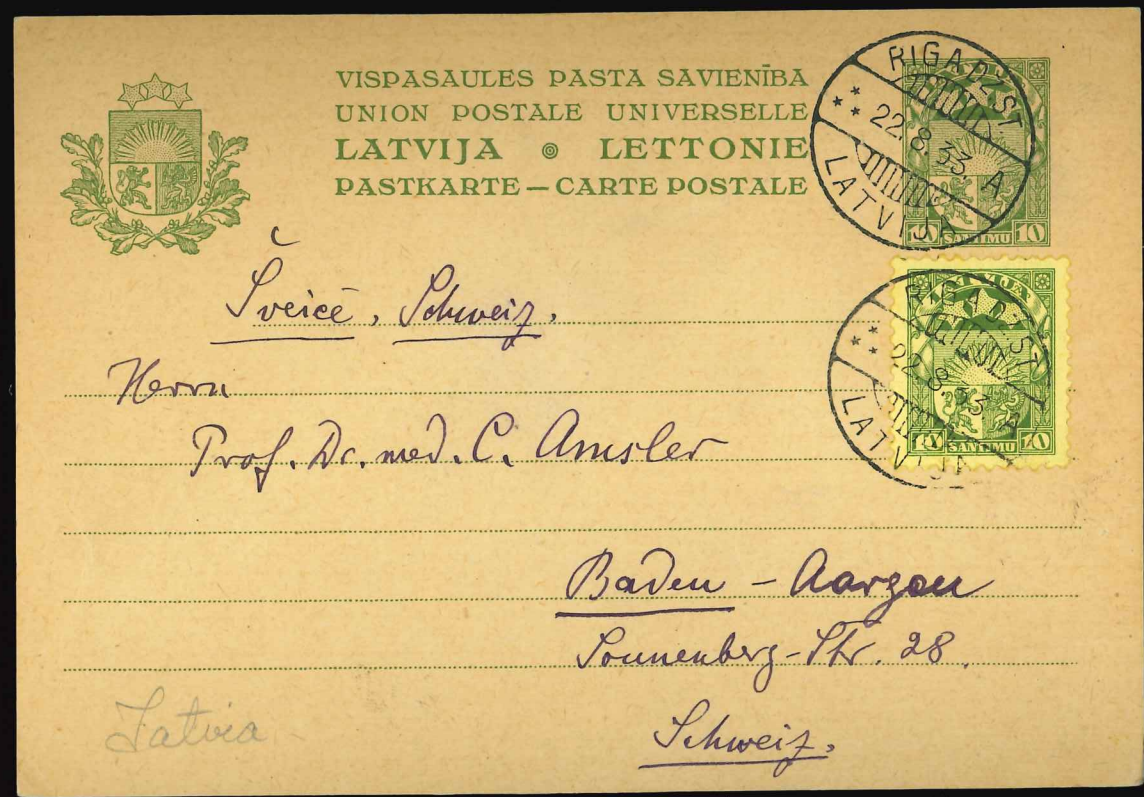 VISPASAULES PASTA SAVIENĪBA
UNION POSTALE UNIVERSELLE
LATVIJA LETTONIE
PASTKARTE — CARTE POSTALE
RIGA DZ.ST.
22.8.33. A
LATVIJA
10 SANTIMU 10
Šveicē, Schweiz.
RIGA DZ.ST.
22.8.33 A
LATVIJA
10 SANTIMU 10
Herrn
Prof. Dr. med. C. Amsler
Baden - Aargau
Sonnenberg-Str. 28.
Schweiz.
Latvia